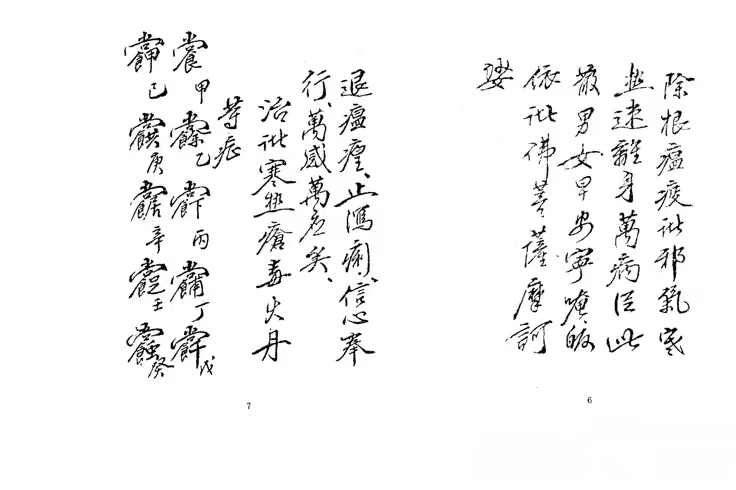 除根瘟疫諸邪氣寒
熱速離身萬病從此
散男女早安寧皈
依諸佛菩薩摩訶
娑
6
退瘟瘴、止瀉痢、信心奉
行、萬感萬應矣、
治諸寒熱瘡毒火丹
等症
甲 乙 丙 丁 戊
己 庚 辛 壬 癸
7